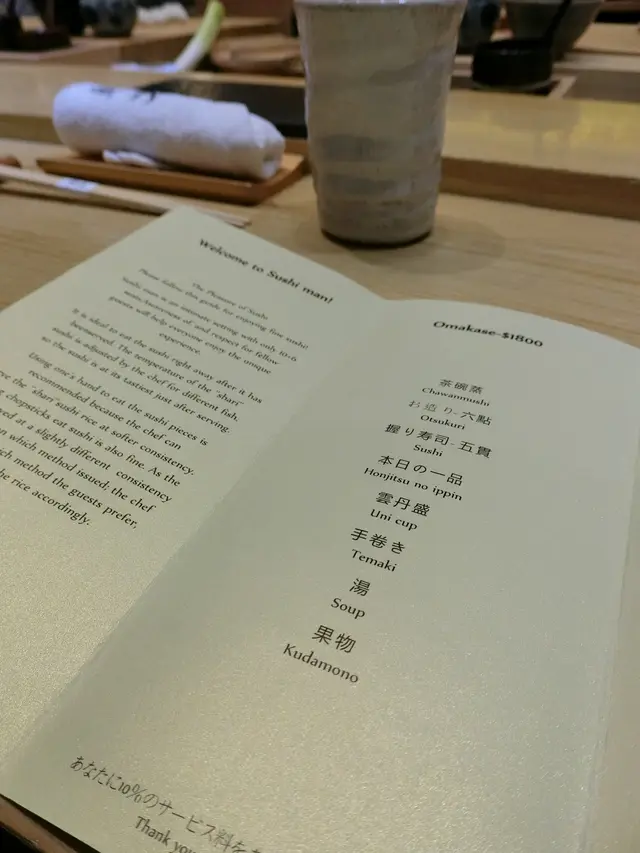 Welcome to Sushi man!
The Pleasure of Sushi
Please follow this guide for enjoying fine sushi!
Sushi man is an intimate setting with only 10-6
seats. Awareness of, and respect for fellow
guests will help everyone enjoy the unique
experience.
It is ideal to eat the sushi right away after it has
beenserved. The temperature of the "shari"
sushi is adjusted by the chef for different fish,
so the sushi is at its tastiest just after serving.
Using one's hand to eat the sushi pieces is
recommended because the chef can
the "shari" sushi rice at softer consistency.
chopsticks eat sushi is also fine. As the
at a slightly different consistency
on which method issued, the chef
which method the guests prefer,
the rice accordingly.
Omakase-$1800
茶碗蒸
Chawanmushi
お造り-六點
Otsukuri
握り寿司-五貫
Sushi
本日の一品
Honjitsu no ippin
雲丹盛
Uni cup
手巻き
Temaki
湯
Soup
果物
Kudamono
あなたに10%のサービス料を
Thank you